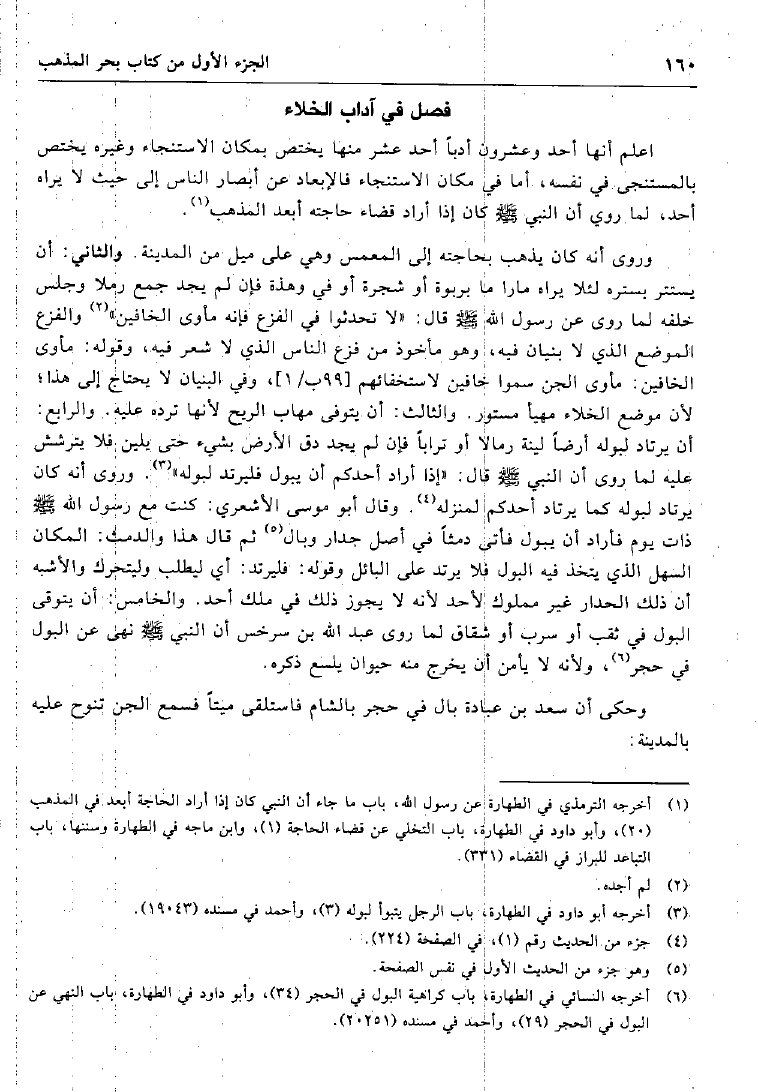 ١٦٠ الجزء الأول من كتاب بحر المذهب
فصل في آداب الخلاء
اعلم أنها أحد وعشرون أدباً أحد عشر منها يختص بمكان الاستنجاء وغيره يختص
بالمستنجى في نفسه، أما في مكان الاستنجاء فالإبعاد عن أبصار الناس إلى حيث لا يراه
أحد، لما روي أن النبي ﷺ كان إذا أراد قضاء حاجته أبعد المذهب(١).
وروى أنه كان يذهب بحاجته إلى المعمس وهي على ميل من المدينة. والثاني: أن
يستتر بستره لئلا يراه مارا ما بربوة أو شجرة أو في وهذة فإن لم يجد جمع رملا وجلس
خلفه لما روى عن رسول الله ﷺ قال: «لا تحدثوا في الفزع فإنه مأوى الخافين»(٢) والفزع
الموضع الذي لا بنيان فيه، وهو مأخوذ من فزع الناس الذي لا شعر فيه، وقوله: مأوى
الخافين: مأوى الجن سموا خافين لاستخفائهم [٩٩ب/ ١]، وفي البنيان لا يحتاج إلى هذا؛
لأن موضع الخلاء مهيأ مستور. والثالث: أن يتوفى مهاب الريح لأنها ترده عليه. والرابع:
أن يرتاد لبوله أرضاً لينة رمالا أو تراباً فإن لم يجد دق الأرض بشيء حتى يلين فلا يترشش
عليه لما روى أن النبي ﷺ قال: «إذا أراد أحدكم أن يبول فليرتد لبوله»(٣). وروى أنه كان
يرتاد لبوله كما يرتاد أحدكم لمنزله(٤). وقال أبو موسى الأشعري: كنت مع رسول الله ﷺ
ذات يوم فأراد أن يبول فأتى دمثاً في أصل جدار وبال(٥) ثم قال هذا والدمث: المكان
السهل الذي يتخذ فيه البول فلا يرتد على البائل وقوله: فليرتد: أي ليطلب وليتحرك والأشبه
أن ذلك الحدار غير مملوك لأحد لأنه لا يجوز ذلك في ملك أحد. والخامس: أن يتوقى
البول في ثقب أو سرب أو شقاق لما روى عبد الله بن سرخس أن النبي ﷺ نهى عن البول
في حجر(٦)، ولأنه لا يأمن أن يخرج منه حيوان يلسع ذكره.
وحكى أن سعد بن عبادة بال في حجر بالشام فاستلقى ميتاً فسمع الجن تنوح عليه
بالمدينة:
(١) أخرجه الترمذي في الطهارة عن رسول الله، باب ما جاء أن النبي كان إذا أراد الحاجة أبعد في المذهب
(٢٠)، وأبو داود في الطهارة، باب التخلي عن قضاء الحاجة (١)، وابن ماجه في الطهارة وسننها، باب
التباعد للبراز في القضاء (٣٣١).
(٢) لم أجده.
(٣) أخرجه أبو داود في الطهارة، باب الرجل يتبوأ لبوله (٣)، وأحمد في مسنده (١٩٠٤٣).
(٤) جزء من الحديث رقم (١)، في الصفحة (٢٢٤).
(٥) وهو جزء من الحديث الأول في نفس الصفحة.
(٦) أخرجه النسائي في الطهارة، باب كراهية البول في الحجر (٣٤)، وأبو داود في الطهارة، باب النهي عن
البول في الحجر (٢٩)، وأحمد في مسنده (٢٠٢٥١).